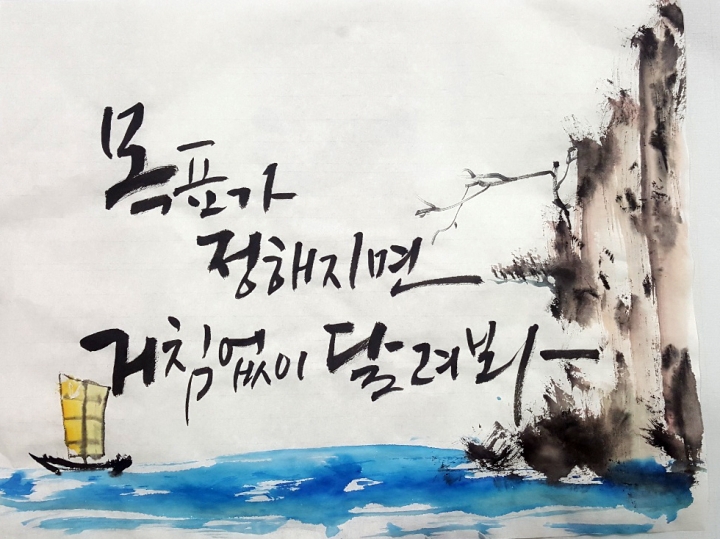 목표가
정해지면
거침없이 달려봐